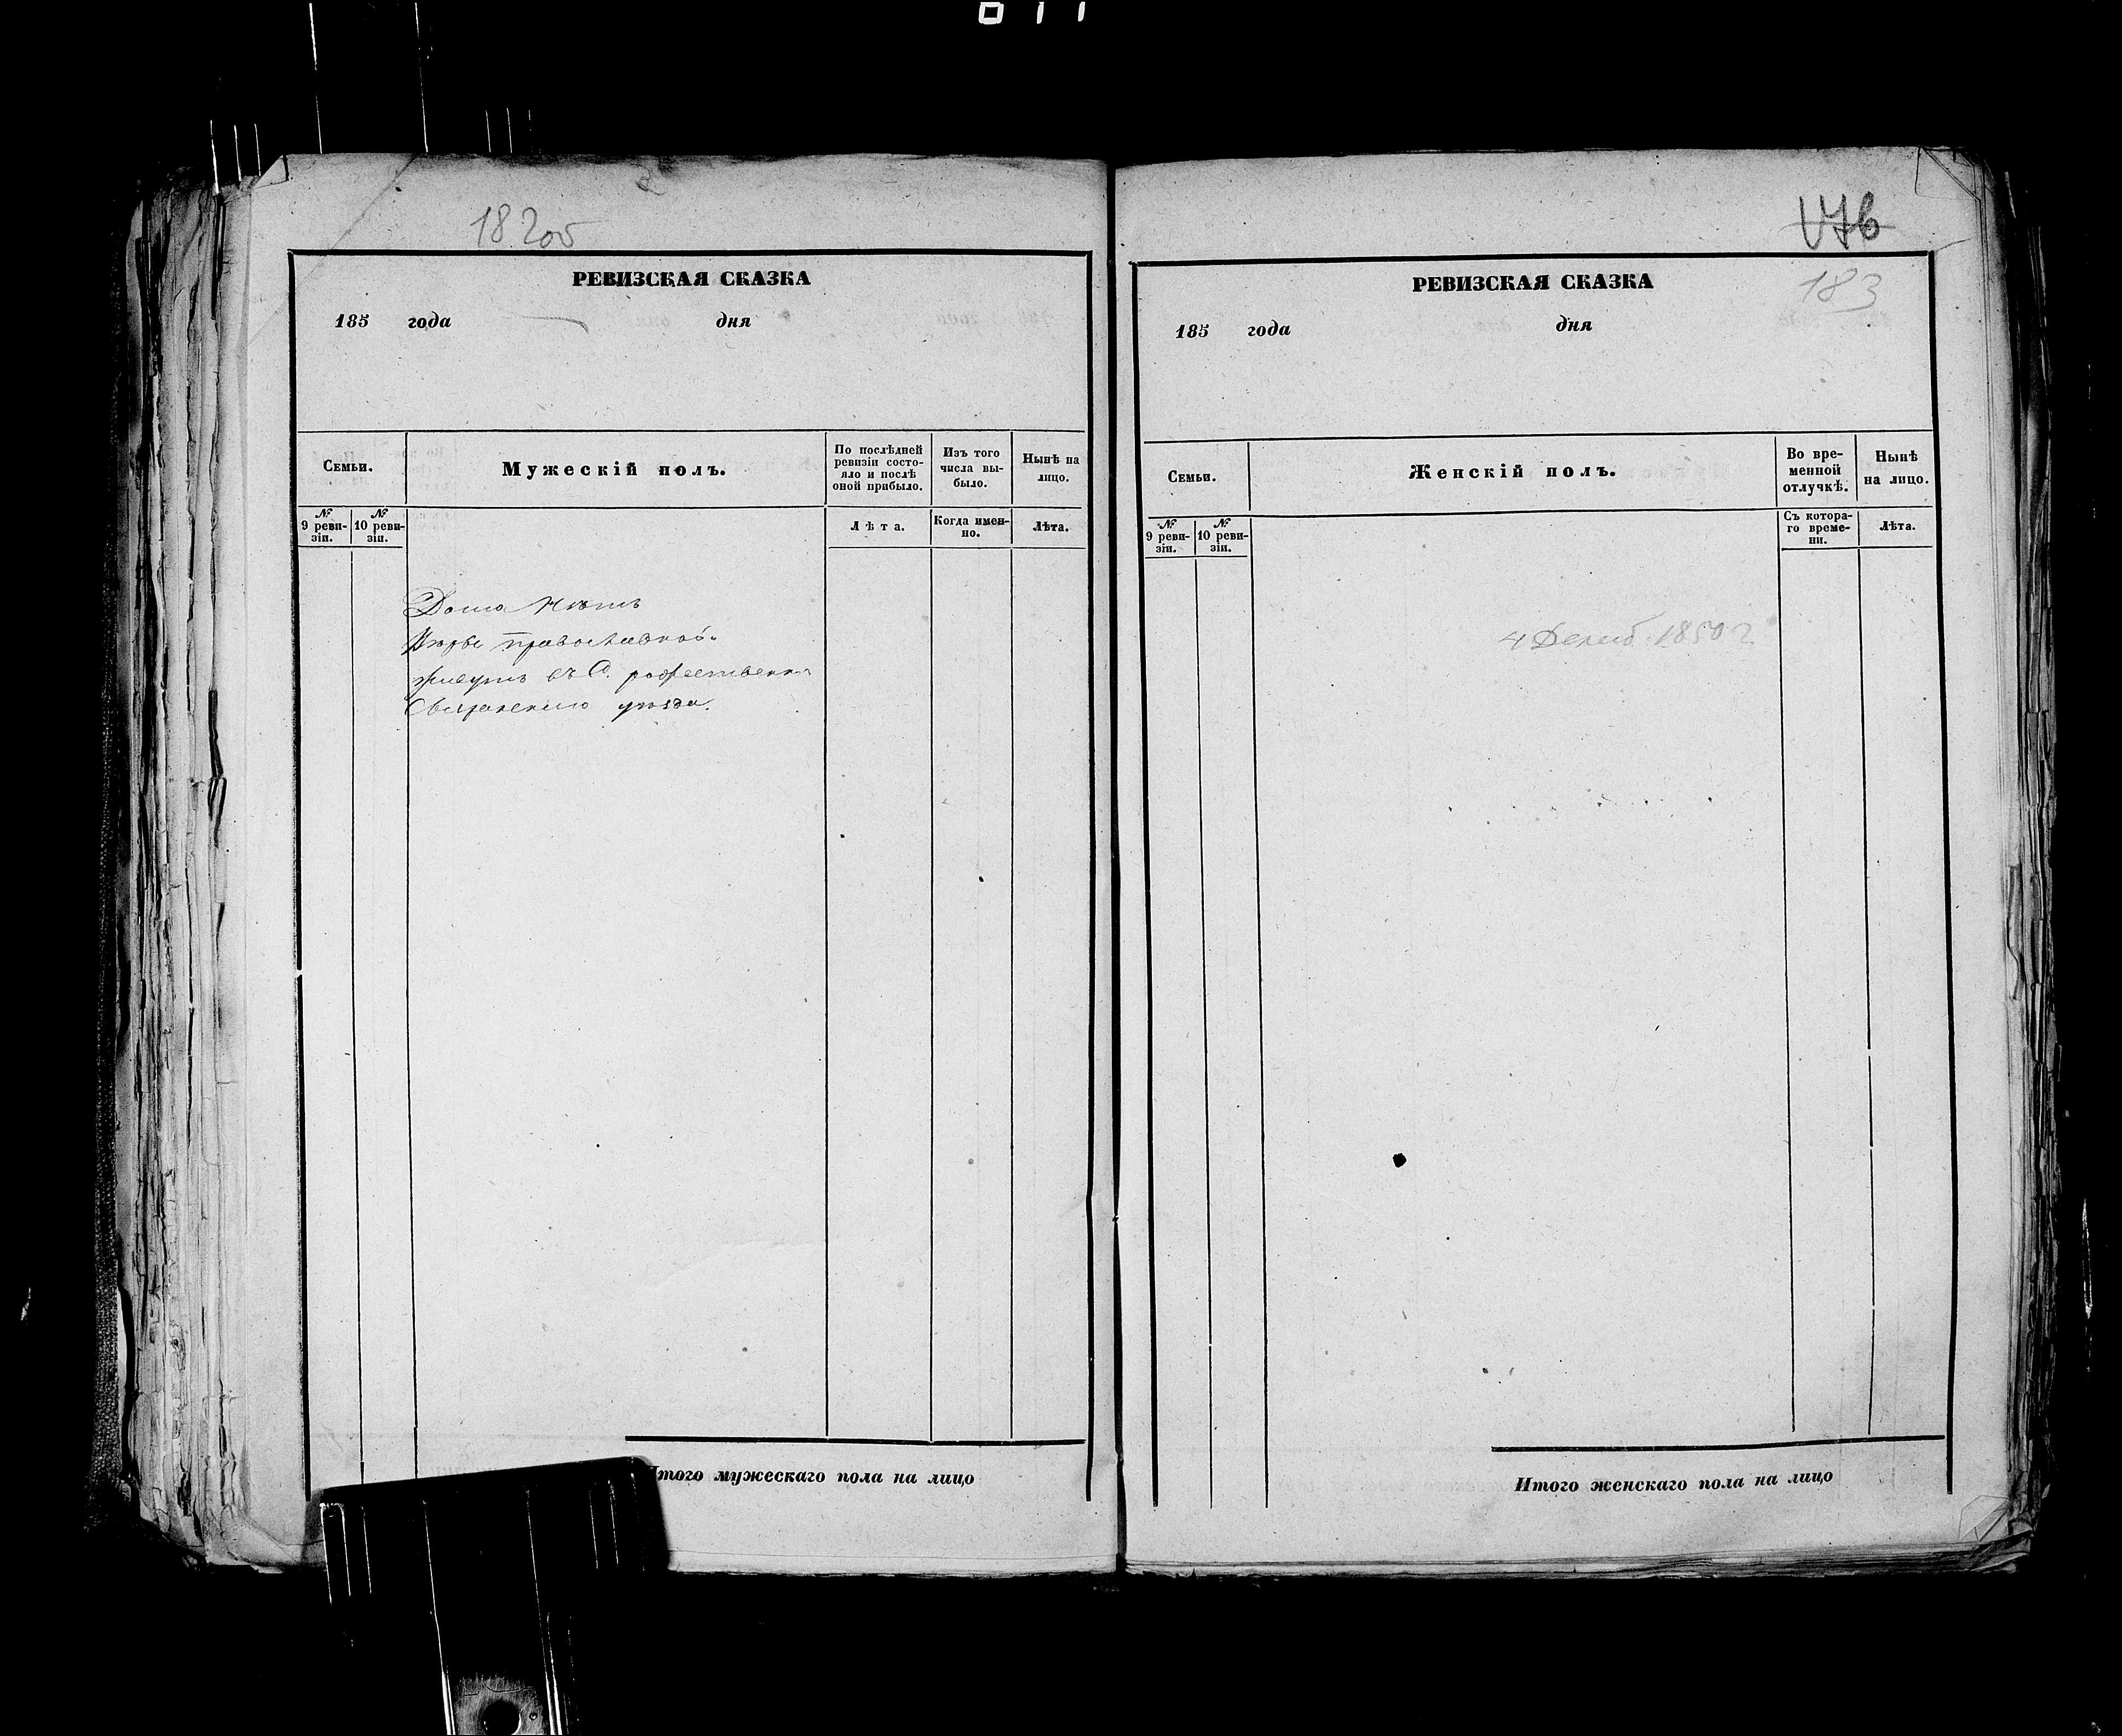 182об
РЕВИЗСКАЯ СКАЗКА
185 года дня
Семьи.
Мужескій полъ.
По послѣдней ревизіи состо-
яло и послѣ оной прибыло.
Изъ того числа вы-
было.
Нынѣ на лицо.
№ 9 реви-
зіи.
№ 10 реви-
зіи.
Лѣта.
Когда имен-
но.
Лѣта.
Дома нѣтъ
Вѣры православной.
живутъ въ С.
уѣзда.
Итого мужескаго пола на лицо
176
183
РЕВИЗСКАЯ СКАЗКА
185 года дня
Семьи.
Женскій полъ.
Во вре-
менной
отлучкѣ.
Нынѣ
на лицо.
№ 9 реви-
зіи.
№ 10 реви-
зіи.
Съ котора-
го време-
ни.
Лѣта.
4 Декаб. 1850 г
Итого женскаго пола на лицо